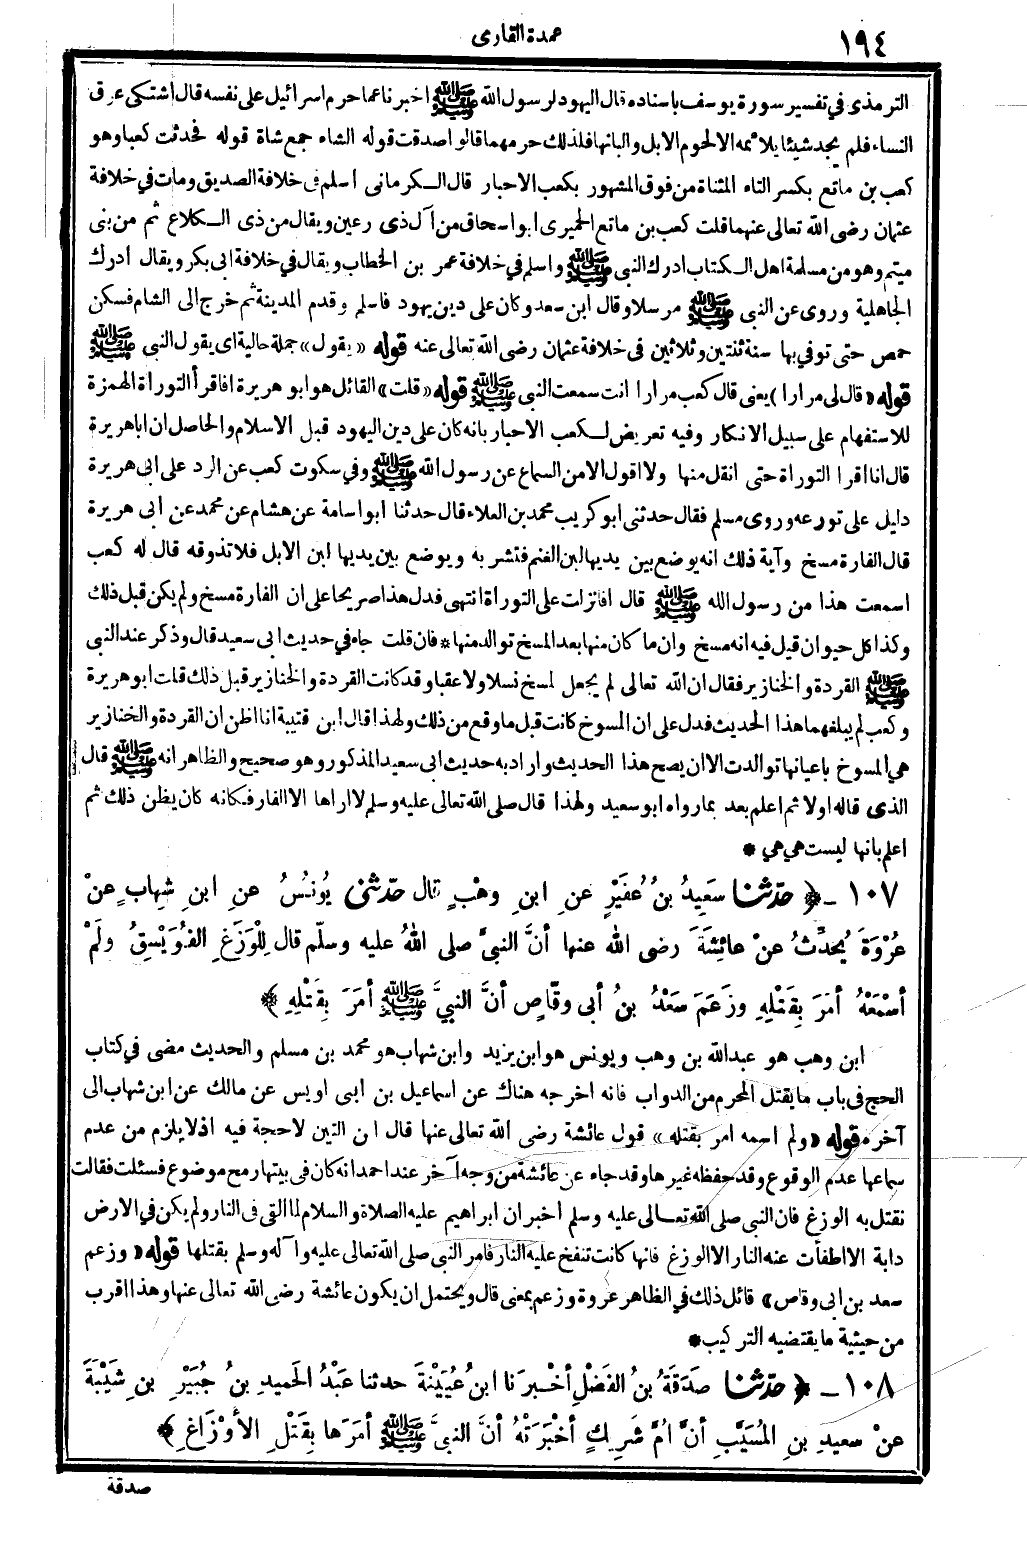 ١٩٤
عمدة القارى
الترمذى في تفسير سورة يوسف باسناده قال اليهود لرسول الله ﷺ اخبرنا عما حرم اسرائيل على نفسه قال اشتكى عرق
النساء فلم يجد شيئا يلائمه الالحوم الابل والبانها فلذلك حرمهما قالوا صدقت قوله الشاء جمع شاة قوله فحدثت كعبا وهو
كعب بن ماتع بكسر التاء المثناة من فوق المشهور بكعب الاحبار قال الكرمانى اسلم فى خلافة الصديق ومات في خلافة
عثمان رضى الله تعالى عنهما قلت كعب بن ماتع الحميرى ابو اسحاق من آل ذى رعين ويقال من ذى الكلاع ثم من بنى
ميتم وهو من مسلمة اهل الكتاب ادرك النبى ﷺ واسلم في خلافة عمر بن الخطاب ويقال في خلافة ابى بكر ويقال أدرك
الجاهلية وروى عن النبى ﷺ مرسلا وقال ابن سعد وكان على دين يهود فاسلم وقدم المدينة ثم خرج الى الشام فسكن
حمص حتى توفي بها سنة ثنتين وثلاثين فى خلافة عثمان رضى الله تعالى عنه قوله «يقول» جملة حالية اى يقول النبى ﷺ
قوله «قال لى مرارا» يعنى قال كعب مرارا انت سمعت النبى ﷺ قوله «قلت» القائل هو ابو هريرة افاقرأ التوراة الهمزة
للاستفهام على سبيل الانكار وفيه تعريض لكعب الاحبار بانه كان على دين اليهود قبل الاسلام والحاصل ان اباهريرة
قال انا اقرا التوراة حتى انقل منها ولا اقول الا من السماع عن رسول الله ﷺ وفي سكوت كعب عن الرد على ابى هريرة
دليل على تورعه وروى مسلم فقال حدثنى ابو كريب محمد بن العلاء قال حدثنا ابو اسامة عن هشام عن محمد عن ابى هريرة
قال الفارة مسخ وآية ذلك انه يوضع بين يديها لبن الغنم فتشربه ويوضع بين يديها لبن الابل فلا تذوقه قال له كعب
اسمعت هذا من رسول الله ﷺ قال افانزلت على التوراة انتهى فدل هذا صريحا على ان الفارة مسخ ولم يكن قبل ذلك
وكذا كل حيوان قيل فيه انه مسخ وان ما كان منها بعد المسخ توالد منها * فان قلت جاء في حديث ابى سعيد قال وذكر عند النبى
ﷺ القردة والخنازير فقال ان الله تعالى لم يجعل لمسخ نسلا ولا عقبا وقد كانت القردة والخنازير قبل ذلك قلت ابو هريرة
وكعب لم يبلغهما هذا الحديث فدل على ان المسوخ كانت قبل ما وقع من ذلك ولهذا قال ابن قتيبة انا اظن ان القردة والخنازير
هي المسوخ باعيانها توالدت الا ان يصح هذا الحديث واراد به حديث ابى سعيد المذكور وهو صحيح والظاهر انه ﷺ قال
الذى قاله اولا ثم اعلم بعد بما رواه ابو سعيد ولهذا قال صلى الله تعالى عليه وسلم لا اراها الا الفار فكانه كان يظن ذلك ثم
اعلم بانها ليست هي هي *
١٠٧ - ﴿ حدّثنا سَعِيدُ بنُ عُفَيْرٍ عنِ ابنِ وهْبٍ قال حدّثنى يُونُسُ عنِ ابنِ شِهابٍ عنْ
عُرْوَةَ يُحَدِّثُ عنْ عائِشَةَ رضى الله عنها أنَّ النبيَّ صلى اللهُ عليه وسلّم قال لِلْوَزَغِ الفُوَيْسِقُ ولَمْ
أسْمَعْهُ أمَرَ بِقَتْلِهِ وزَعَمَ سَعْدُ بنُ أبى وقّاصٍ أنَّ النبيَّ ﷺ أمَرَ بِقَتْلِهِ ﴾
ابن وهب هو عبدالله بن وهب ويونس هو ابن يزيد وابن شهاب هو محمد بن مسلم والحديث مضى في كتاب
الحج فى باب ما يقتل المحرم من الدواب فانه اخرجه هناك عن اسماعيل بن ابى اويس عن مالك عن ابن شهاب الى
آخره قوله «ولم اسمعه امر بقتله» قول عائشة رضى الله تعالى عنها قال ابن التين لا حجة فيه اذ لا يلزم من عدم
سماعها عدم الوقوع وقد حفظه غيرها وقد جاء عن عائشة من وجه آخر عند احمد انه كان فى بيتها رمح موضوع فسئلت فقالت
نقتل به الوزغ فان النبى صلى الله تعالى عليه وسلم اخبر ان ابراهيم عليه الصلاة والسلام لما القى فى النار ولم يكن في الارض
دابة الا اطفأت عنه النار الا الوزغ فانها كانت تنفخ عليه النار فامر النبى صلى الله تعالى عليه وآله وسلم بقتلها قوله «وزعم
سعد بن ابى وقاص» قائل ذلك في الظاهر عروة وزعم بمعنى قال ويحتمل ان يكون عائشة رضى الله تعالى عنها وهذا اقرب
من حيثية ما يقتضيه التركيب *
١٠٨ - ﴿ حدّثنا صَدَقَةُ بنُ الفَضْلِ أخْبرَنا ابنُ عُيَيْنَةَ حدثنا عَبْدُ الحَميدِ بنُ جُبَيْرِ بنِ شَيْبَةَ
عنْ سعيدِ بنِ المُسَيَّبِ أنَّ أُمَّ شَرِيكٍ أخْبَرَتْهُ أنَّ النبيَّ ﷺ أمَرَها بِقَتْلِ الأوْزَاغِ ﴾
صدقة